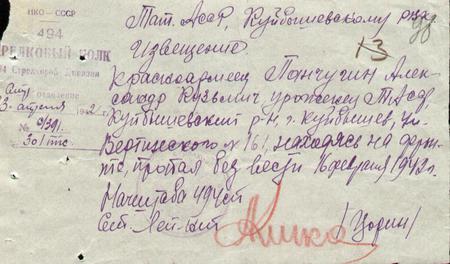 НКО–СССР
494
СТРЕЛКОВЫЙ ПОЛК
Стрелковой Дивизии
отделение
3 апреля 1942 г.
№ 0/391
Тат. Асср, Куйбышевскому рвк
13
Извещение
Красноармеец Панчугин Алек-
сандр Кузьмич уроженец ТАсср
Куйбышевский р-н, г. Куйбышев, ул.
№ 161, находясь на фрон-
те, пропал без вести 16 февраля 1942 г.
Начштаба 494 сп
Ст. Лей-нт